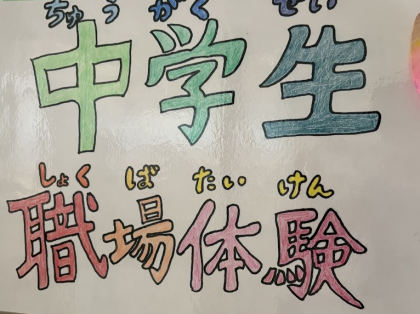 ちゅう がく せい
中学生
しょく ば たい けん
職場体験